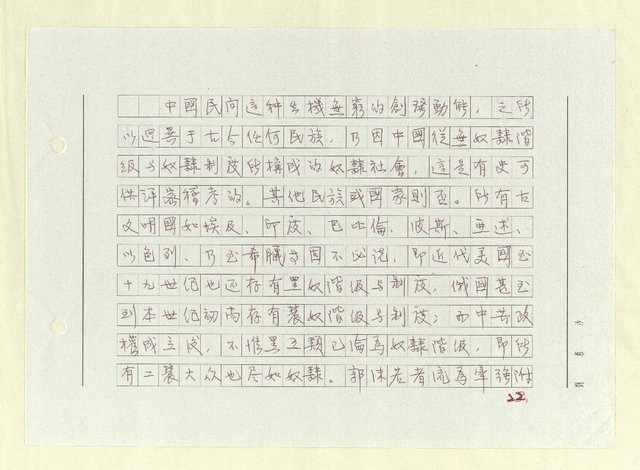 中國民间这种生機無窮的創發動能，之所
以迥異于古今任何民族，乃因中國從無奴隸階
級与奴隸制度所構成的奴隸社會，這是有史可
供详密稽考的。其他民族或國家則否。所有古
文明國如埃及、印度、巴比倫、波斯、亜述、
以色列、乃至希臘等因不必说，即近代美國至
十九世纪也还存有黑奴階级与制度，俄國甚至
到本世纪初尚存有農奴階级与制度；而中共政
權成立後，不惟黑五類已倫為奴隸階级，即所
有工農大众也尽如奴隸。郭沫若者流為牽强附
22